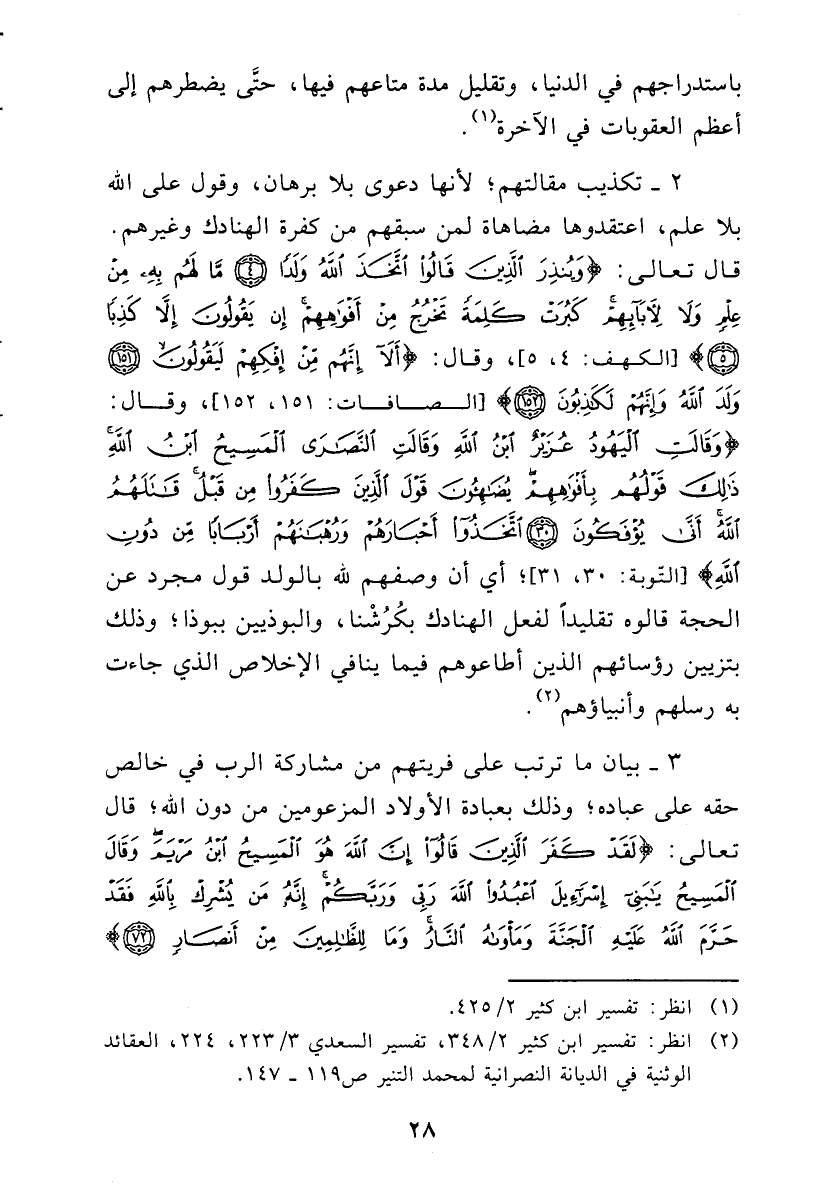 باستدراجهم في الدنيا، وتقليل مدة متاعهم فيها، حتَّى يضطرهم إلى
أعظم العقوبات في الآخرة(١).
٢ ـ تكذيب مقالتهم؛ لأنها دعوى بلا برهان، وقول على الله
بلا علم، اعتقدوها مضاهاة لمن سبقهم من كفرة الهنادك وغيرهم.
قال تعالى: ﴿وَيُنذِرَ ٱلَّذِينَ قَالُوا۟ ٱتَّخَذَ ٱللَّهُ وَلَدًا ﴿٤﴾ مَّا لَهُم بِهِۦ مِنْ
عِلْمٍ وَلَا لِآبَآئِهِمْ ۚ كَبُرَتْ كَلِمَةً تَخْرُجُ مِنْ أَفْوَٰهِهِمْ ۚ إِن يَقُولُونَ إِلَّا كَذِبًا
﴿٥﴾﴾ [الكهف: ٤، ٥]، وقال: ﴿أَلَآ إِنَّهُم مِّنْ إِفْكِهِمْ لَيَقُولُونَ ﴿١٥١﴾
وَلَدَ ٱللَّهُ وَإِنَّهُمْ لَكَٰذِبُونَ ﴿١٥٢﴾﴾ [الـصـافـات: ١٥١، ١٥٢]، وقـال:
﴿وَقَالَتِ ٱلْيَهُودُ عُزَيْرٌ ٱبْنُ ٱللَّهِ وَقَالَتِ ٱلنَّصَٰرَى ٱلْمَسِيحُ ٱبْنُ ٱللَّهِ ۖ
ذَٰلِكَ قَوْلُهُم بِأَفْوَٰهِهِمْ ۖ يُضَٰهِـُٔونَ قَوْلَ ٱلَّذِينَ كَفَرُوا۟ مِن قَبْلُ ۚ قَٰتَلَهُمُ
ٱللَّهُ ۚ أَنَّىٰ يُؤْفَكُونَ ﴿٣٠﴾ ٱتَّخَذُوٓا۟ أَحْبَارَهُمْ وَرُهْبَٰنَهُمْ أَرْبَابًا مِّن دُونِ
ٱللَّهِ﴾ [التّوبة: ٣٠، ٣١]؛ أي أن وصفهم لله بالولد قول مجرد عن
الحجة قالوه تقليداً لفعل الهنادك بكُرُشْنا، والبوذيين ببوذا؛ وذلك
بتزيين رؤسائهم الذين أطاعوهم فيما ينافي الإخلاص الذي جاءت
به رسلهم وأنبياؤهم(٢).
٣ ـ بيان ما ترتب على فريتهم من مشاركة الرب في خالص
حقه على عباده؛ وذلك بعبادة الأولاد المزعومين من دون الله؛ قال
تعالى: ﴿لَقَدْ كَفَرَ ٱلَّذِينَ قَالُوٓا۟ إِنَّ ٱللَّهَ هُوَ ٱلْمَسِيحُ ٱبْنُ مَرْيَمَ ۖ وَقَالَ
ٱلْمَسِيحُ يَٰبَنِىٓ إِسْرَٰٓءِيلَ ٱعْبُدُوا۟ ٱللَّهَ رَبِّى وَرَبَّكُمْ ۖ إِنَّهُۥ مَن يُشْرِكْ بِٱللَّهِ فَقَدْ
حَرَّمَ ٱللَّهُ عَلَيْهِ ٱلْجَنَّةَ وَمَأْوَىٰهُ ٱلنَّارُ ۖ وَمَا لِلظَّٰلِمِينَ مِنْ أَنصَارٍ ﴿٧٢﴾﴾
(١) انظر: تفسير ابن كثير ٢/ ٤٢٥.
(٢) انظر: تفسير ابن كثير ٢/ ٣٤٨، تفسير السعدي ٣/ ٢٢٣، ٢٢٤، العقائد
الوثنية في الديانة النصرانية لمحمد التنير ص١١٩ ـ ١٤٧.
٢٨